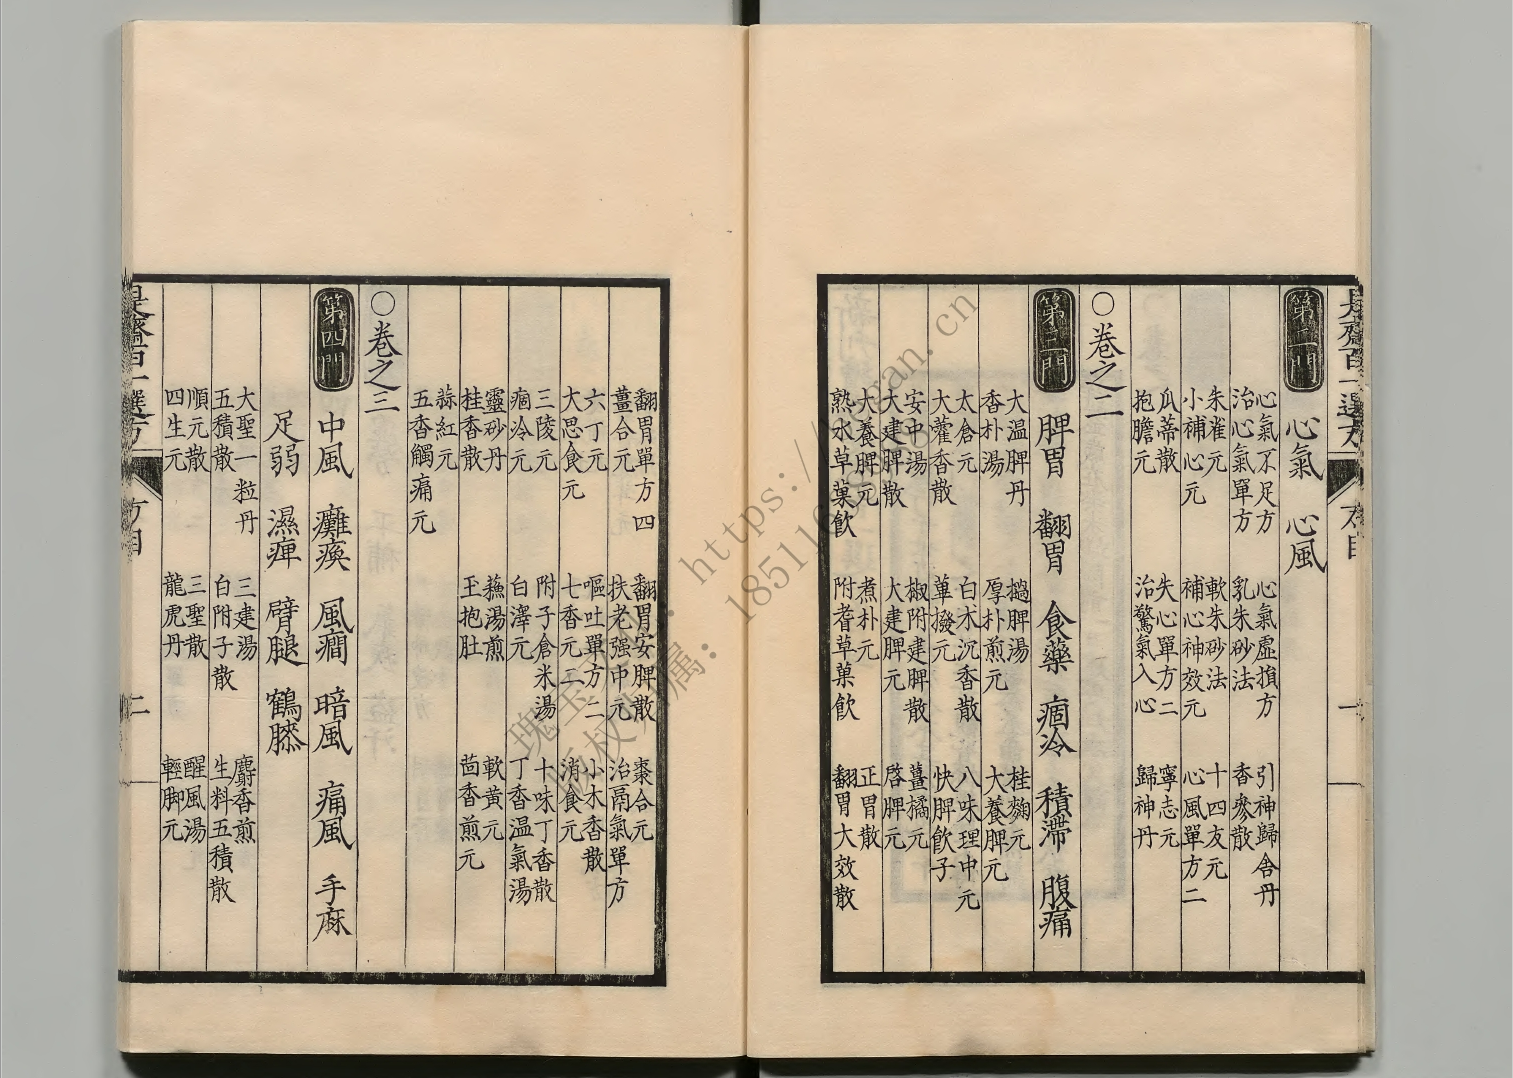 是齋百一選方 方目 一
第二門 心氣 心風
心氣不足方 心氣虛損方 引神歸舍丹
治心氣單方 乳朱砂法 香參散
朱雀元 軟朱砂法 十四友元
小補心元 補心神效元 心風單方二
瓜蒂散 失心單方二 寧志元
抱膽元 治驚氣入心 歸神丹
○卷之二
第三門 脾胃 翻胃 食藥 痼冷 積滯 腹痛
大溫脾丹 撾脾湯 桂麴元
杏朴湯 厚朴煎元 大養脾元
太倉元 白朮沉香散 八味理中元
大藿香散 蓽撥元 快脾飲子
安中湯 椒附建脾散 薑橘元
大建脾散 大建脾元 啓脾元
大養脾元 煮朴元 正胃散
熟水草菓飲 附耆草菓飲 翻胃大效散
翻胃單方四 翻胃安脾散 棗合元
薑合元 扶老强中元 治鬲氣單方
六丁元 嘔吐單方二 小木香散
大思食元 七香元二 消食元
三陵元 附子倉米湯 十味丁香散
痼冷元 白澤元 丁香温氣湯
靈砂丹 蘓湯煎 軟黃元
桂香散 玉抱肚 茴香煎元
蒜紅元
五香觸痛元
○卷之三
第四門 中風 癱瘓 風癎 暗風 痛風 手麻
足弱 濕痺 臂腿 鶴膝
大聖一粒丹 三建湯 麝香煎
五積散 白附子散 生料五積散
順元散 三聖散 醒風湯
四生元 龍虎丹 輕脚元
是齋百一選方 方目 二